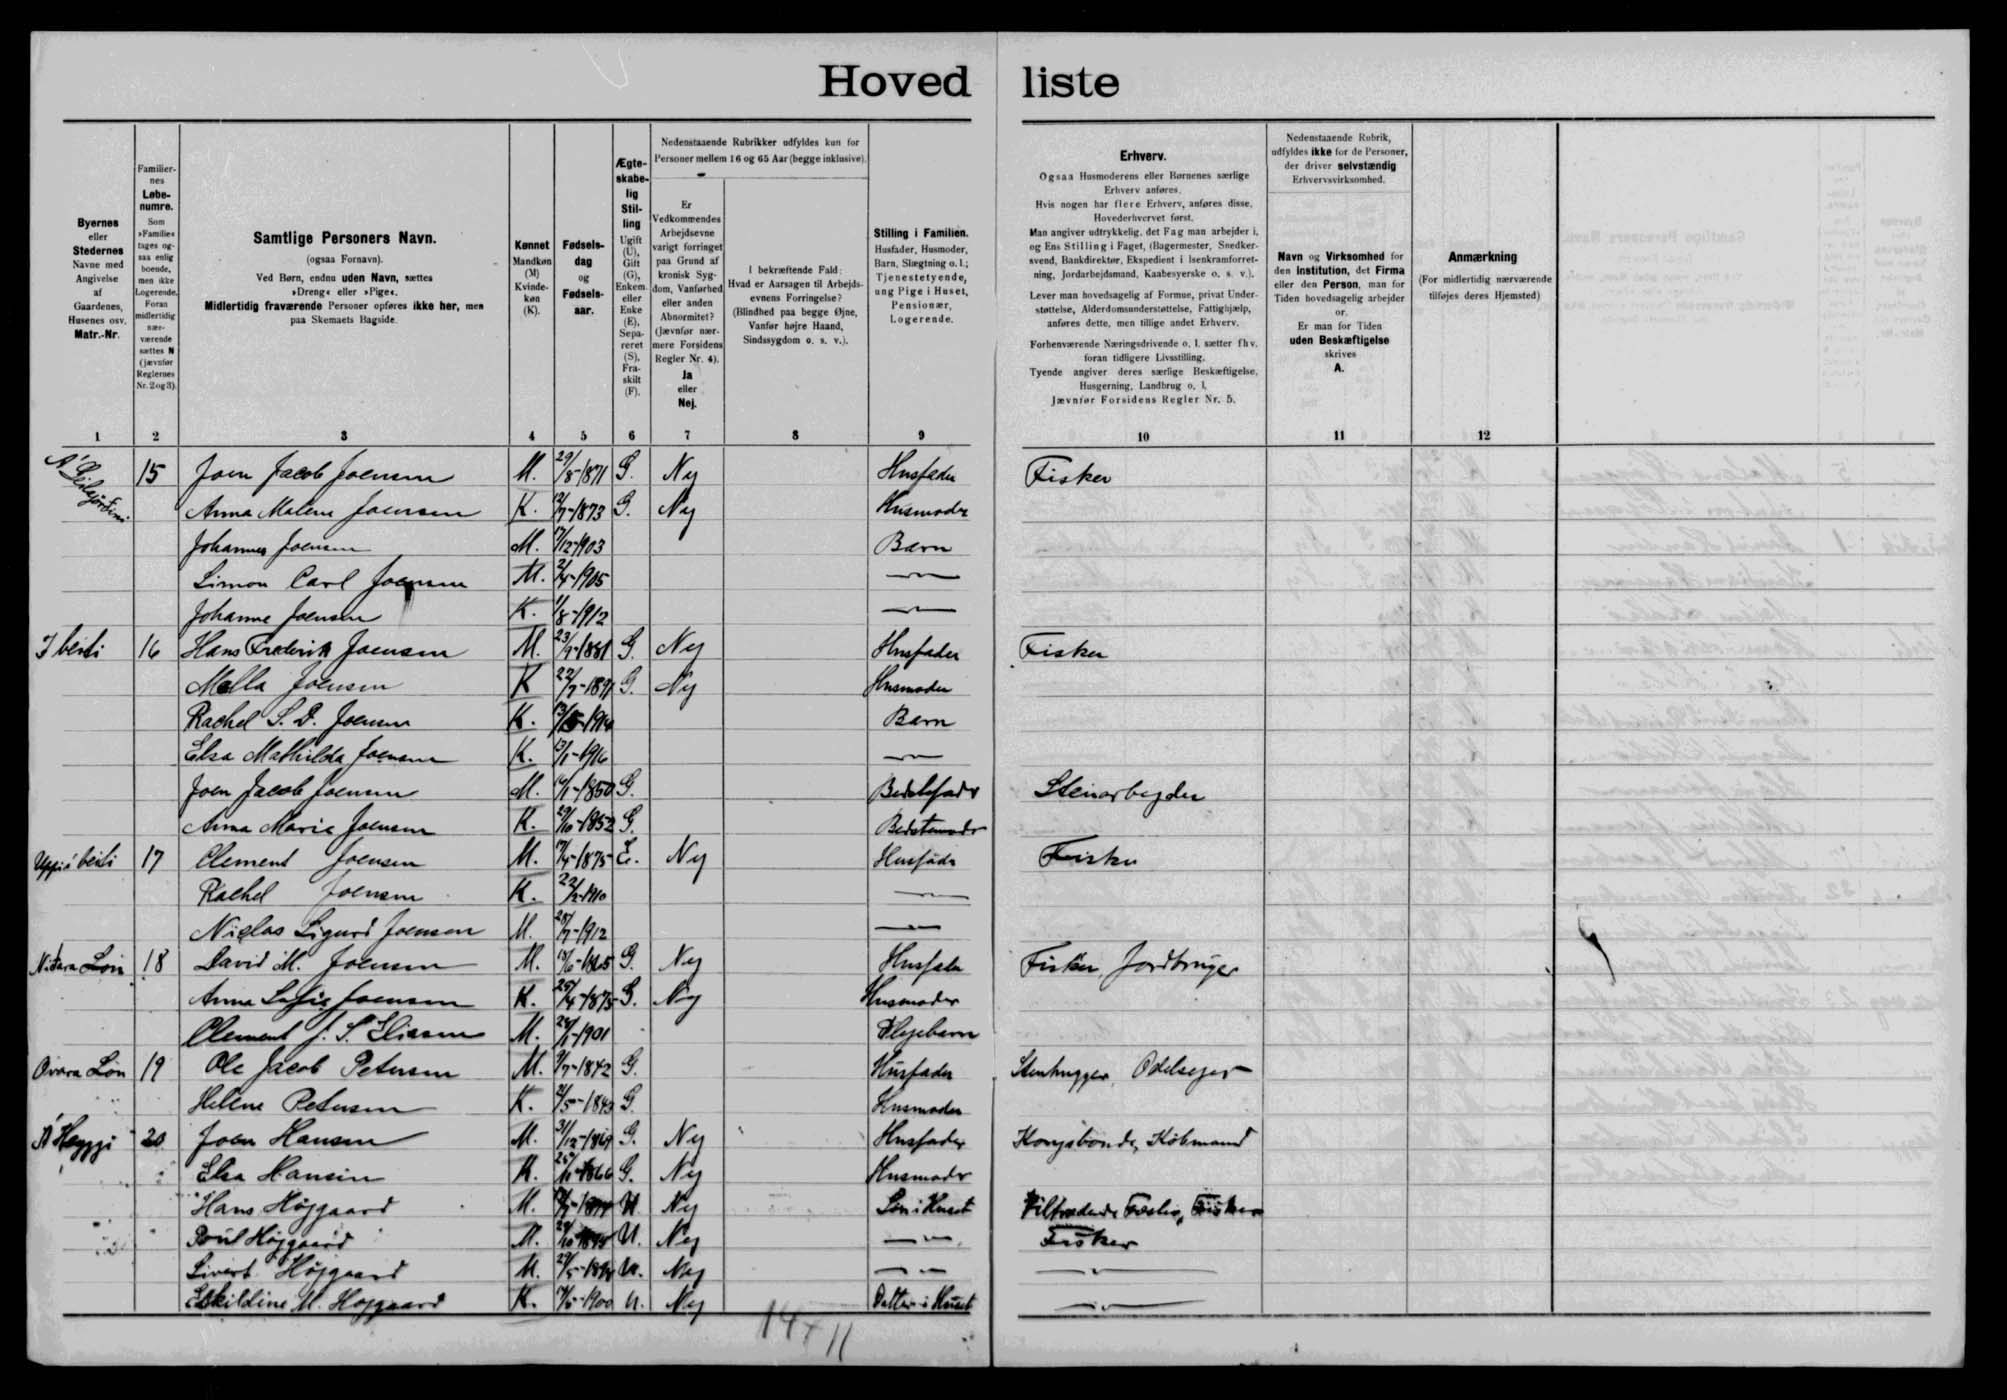 Hoved liste
Byernes
eller
Stedernes
Navne med
Angivelse
af
Gaardenes,
Husenes osv.
Matr.-Nr.
Familier-
nes
Løbe-
numre.
Som
»Familie«
tages og-
saa enlig
boende,
men ikke
Logerende.
Foran
midlertidig
nær-
værende
sættes N
(jævnfør
Reglernes
Nr. 2 og 3).
Samtlige Personers Navn.
(ogsaa Fornavn).
Ved Børn, endnu uden Navn, sættes
»Dreng« eller »Pige«.
Midlertidig fraværende Personer opføres ikke her, men
paa Skemaets Bagside.
Kønnet
Mandkøn
(M)
Kvinde-
køn
(K).
Fødsels-
dag
og
Fødsels-
aar.
Ægte-
skabe-
lig
Stil-
ling
Ugift
(U),
Gift
(G),
Enkem.
eller
Enke
(E),
Sepa-
reret
(S),
Fra-
skilt
(F).
Nedenstaaende Rubrikker udfyldes kun for
Personer mellem 16 og 65 Aar (begge inklusive).
Er
Vedkommendes
Arbejdsevne
varigt forringet
paa Grund af
kronisk Syg-
dom, Vanførhed
eller anden
Abnormitet?
(Jævnfør nær-
mere Forsidens
Regler Nr. 4).
Ja
eller
Nej.
I bekræftende Fald:
Hvad er Aarsagen til Arbejds-
evnens Forringelse?
(Blindhed paa begge Øjne,
Vanfør højre Haand,
Sindssygdom o. s. v.).
Stilling i Familien.
Husfader, Husmoder,
Barn, Slægtning o. l.;
Tjenestetyende,
ung Pige i Huset,
Pensionær,
Logerende.
Erhverv.
Ogsaa Husmoderens eller Børnenes særlige
Erhverv anføres.
Hvis nogen har flere Erhverv, anføres disse,
Hovederhvervet først.
Man angiver udtrykkelig, det Fag man arbejder i,
og Ens Stilling i Faget, (Bagermester, Snedker-
svend, Bankdirektør, Ekspedient i Isenkramforret-
ning, Jordarbejdsmand, Kaabesyerske o. s. v.).
Lever man hovedsagelig af Formue, privat Under-
støttelse, Alderdomsunderstøttelse, Fattighjælp,
anføres dette, men tillige andet Erhverv.
Forhenværende Næringsdrivende o. l. sætter fhv.
foran tidligere Livsstilling.
Tyende angiver deres særlige Beskæftigelse,
Husgerning, Landbrug o. l.
Jævnfør Forsidens Regler Nr. 5.
Nedenstaaende Rubrik,
udfyldes ikke for de Personer,
der driver selvstændig
Erhvervsvirksomhed.
Navn og Virksomhed for
den Institution, det Firma
eller den Person, man for
Tiden hovedsagelig arbejder
for.
Er man for Tiden
uden Beskæftigelse
skrives
A.
Anmærkning
(For midlertidig nærværende
tilføjes deres Hjemsted)
1 2 3 4 5 6 7 8 9 10 11 12
15 Joen Jacob Joensen M. 29/8-1871 G. Nej Husfader Fisker
Anna Malene Joensen K. 12/7-1873 G. Nej Husmoder
Johannes Joensen M. 17/12-1903 Barn
Simon Carl Joensen M. 2/4-1905 —"—
Johanne Joensen K. 1/8-1912 —"—
I beiti 16 Hans Frederik Joensen M. 23/7-1881 G. Nej Husfader Fisker
Malla Joensen K 22/7-1891 G. Nej Husmoder
Rachel S. D. Joensen K. Barn
Elsa Mathilda Joensen K. 13/1-1916 —"—
Joen Jacob Joensen M. 16/1-1850 G. Bedstefader Stenarbejder
Anna Maria Joensen K. 29/10-1852 G. Bedstemoder
Uppi i beiti 17 Clement Joensen M. 17/4-1875 E. Nej Husfader Fisker
Rachel Joensen K. 22/2-1910 —"—
Niclas Sigurd Joensen M. 25/7-1912 —"—
Nidara Lon 18 David M. Joensen M. 13/6-1865 G. Nej Husfader Fisker, Jordbruger
Anna Sofie Joensen K. 25/4-1875 G. Nej Husmoder
Clement J. S. Eliasen M. 24/1-1901 Plejebarn
Ovara Lon 19 Ole Jacob Petersen M. 9/7-1842 G. Husfader Stenhugger, Odelsejer
Helene Petersen K. 2/5-1843 G. Husmoder
Á Heyggi 20 Joen Hansen M. 31/12-1864 G. Nej Husfader Kongsbonde, Købmand
Elsa Hansen K. G. Nej Husmoder
Hans Højgaard M. U Nej Søn i Huset Tiltrædende Fæster, Fisker
Poul Højgaard M. U. Nej —"— Fisker
Sivert Højgaard M. U. Nej —"— —"—
Eskildine M. Højgaard K. 17/5-1900 U. Nej Datter i Huset —"—
14 + 11